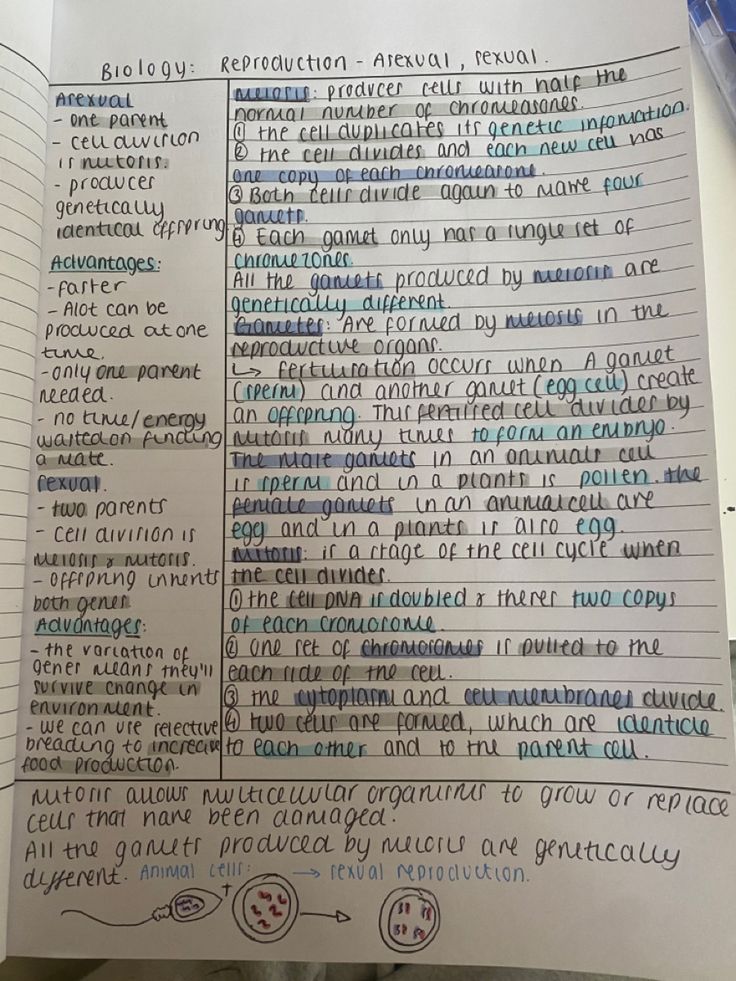 Biology: Reproduction - Asexual, sexual.
Asexual
- one parent
- cell division
is mitosis.
- produces
genetically
identical offspring
Advantages:
- faster
- Alot can be
produced at one
time.
- only one parent
needed.
- no time/energy
wasted on finding
a mate.
sexual.
- two parents
- cell division is
meiosis & mitosis.
- offspring inherits
both genes
Advantages:
- the variation of
genes means they'll
survive change in
environment.
- we can use selective
breading to increcive
food production.
Meiosis: produces cells with half the
normal number of chromeasones.
① the cell duplicates its genetic infomation.
② the cell divides and each new cell has
one copy of each chromeasone.
③ Both cells divide again to make four
gamets.
④ Each gamet only has a single set of
chromezones.
All the gamets produced by meiosis are
genetically different.
Gametes: Are formed by meiosis in the
reproductive organs.
↳ fertilisation occurs when A gamet
(sperm) and another gamet (egg cell) create
an offspring. This fertilised cell divides by
mitosis many times to form an embryo.
The male gamets in an animals cell
is sperm and in a plants is pollen. the
female gamets in an animal cell are
egg and in a plants is also egg.
Mitosis: is a stage of the cell cycle when
the cell divides.
① the cell DNA is doubled & theres two copys
of each cromosome.
② one set of chromosomes is pulled to the
each side of the cell.
③ the cytoplasm and cell membranes divide.
④ two cells are formed, which are identicle
to each other and to the parent cell.
mitosis allows multicellular organisms to grow or replace
cells that have been damaged.
All the gamets produced by meiosis are genetically
different. Animal cells: → sexual reproduction.
+